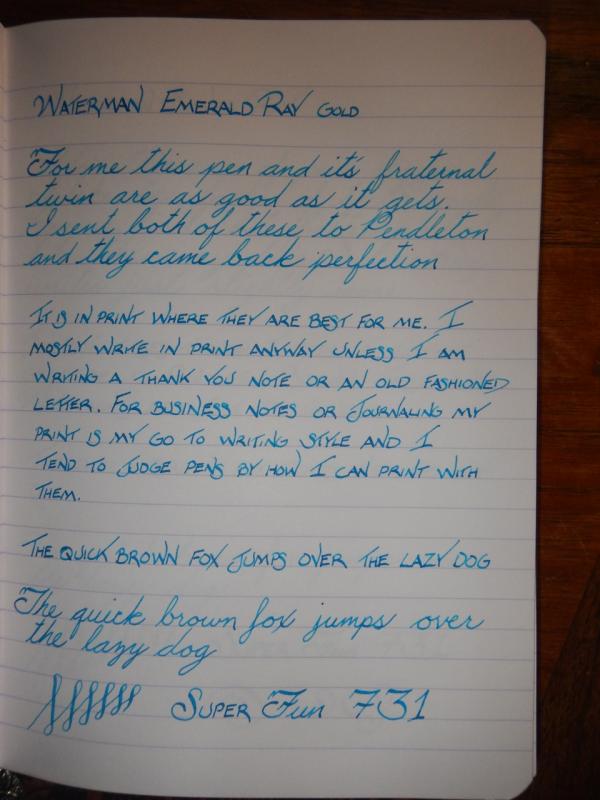 WATERMAN EMERALD RAY GOLD
For me this pen and it's fraternal
twin are as good as it gets.
I sent both of these to Pendleton
and they came back perfection
IT IS IN PRINT WHERE THEY ARE BEST FOR ME. I
MOSTLY WRITE IN PRINT ANYWAY UNLESS I AM
WRITING A THANK YOU NOTE OR AN OLD FASHIONED
LETTER. FOR BUSINESS NOTES OR JOURNALING MY
PRINT IS MY GO TO WRITING STYLE AND I
TEND TO JUDGE PENS BY HOW I CAN PRINT WITH
THEM.
THE QUICK BROWN FOX JUMPS OVER THE LAZY DOG
The quick brown fox jumps over
the lazy dog
SUPER Fun 731